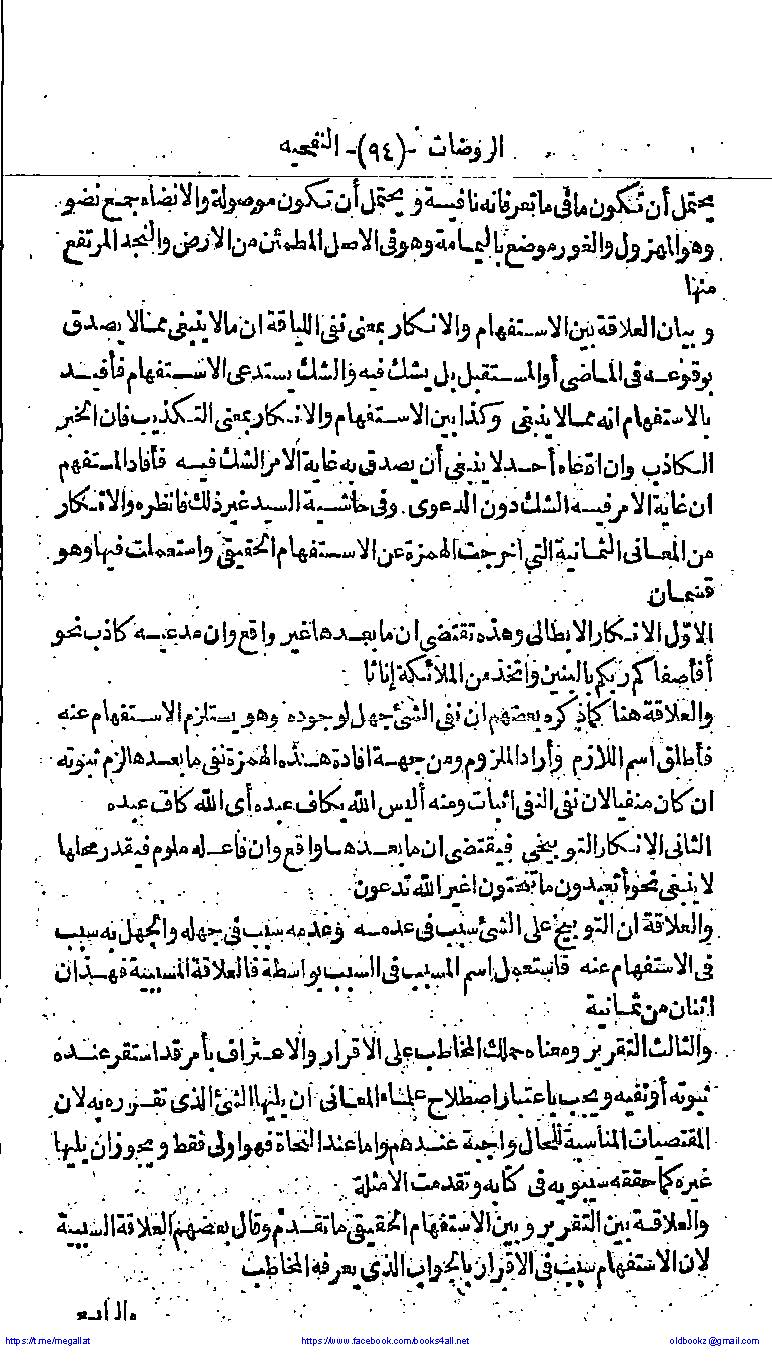 الروضات -(٩٤)- النفحيه
يحتمل أن تكون ما فى ما تعرفانه نافيسة ويحتمل أن تكون موصولة والانضاء جمع نضو
وهو المهزول والغور موضع باليمامة وهو فى الاصل المطمئن من الارض والنجد المرتفع
منها
وبيان العلاقة بين الاستفهام والانكار بمعنى نفى اللياقة ان مالا ينبغى ممالا يصدق
بوقوعه فى الماضى أو المستقبل بل يشك فيه والشك يستدعى الاستفهام فأفيد
بالاستفهام انه ممالا ينبغى وكذا بين الاستفهام والانكار بمعنى التكذيب فان الخبر
الكاذب وان ادعاه أحد لا ينبغى أن يصدق به غاية الامر الشك فيه فأفاد المستفهم
ان غاية الامر فيه الشك دون الدعوى وفى حاشية السيد غير ذلك فانظره والانكار
من المعانى الثمانية التي اخرجت الهمزة عن الاستفهام الحقيقى واستعملت فيها وهو
قسمان
الاول الانكار الابطالى وهذه تقتضى ان ما بعدها غير واقع وان مدعيه كاذب نحو
أفأصفاكم ربكم بالبنين واتخذ من الملائكة إناثا
والعلاقة هنا كما ذكره بعضهم ان نفى الشئ جهل لوجوده وهو يستلزم الاستفهام عنه
فأطلق اسم اللازم وأراد الملزوم ومن جهة افادة هذه الهمزة نفى ما بعدها لزم ثبوته
ان كان منفيا لان نفى النفى اثبات ومنه أليس الله بكاف عبده أى الله كاف عبده
الثانى الانكار التوبيخي فيقتضى ان ما بعدها واقع وان فاعله ملوم فيقدر محلها
لا ينبغى نحو أتعبدون ما تنحتون اغير الله تدعون
والعلاقة ان التوبيخ على الشئ سبب فى عدمه وعدمه سبب فى جهله والجهل به سبب
فى الاستفهام عنه فاستعمل اسم المسبب فى السبب بواسطة فالعلاقة المسببية فهذان
اثنان من ثمانية
والثالث التقرير ومعناه حملك المخاطب على الاقرار والاعتراف بأمر قد استقر عنده
ثبوته أو نفيه ويجب باعتبار اصطلاح علماء المعانى ان يليها الشئ الذى تقرره به لان
المقتضيات المناسبة للحال واجبة عندهم واما عند النحاة فهو اولى فقط ويجوز ان يليها
غيره كما حققه سيبويه فى كتابه وتقدمت الامثلة
والعلاقة بين التقرير وبين الاستفهام الحقيقى ما تقدم وقال بعضهم العلاقة السببية
لان الاستفهام سبب فى الاقرار بالجواب الذي يعرفه المخاطب
والرابع
https://t.me/megallat https://www.facebook.com/books4all.net oldbookz@gmail.com